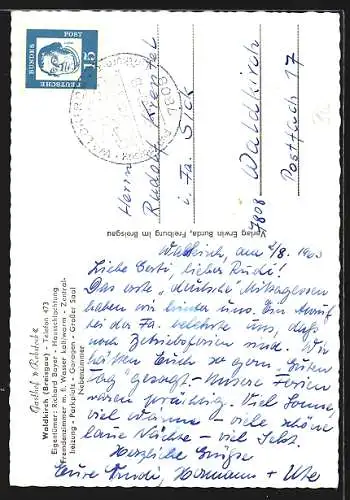 15
DEUTSCHE
BUNDES
POST
7808
Herrn
Rudolf
i. Fa. Sick
7808 Waldkirch
Postfach 17
Verlag Erwin Burda, Freiburg im Breisgau
Gasthof »Rebstock«
Waldkirch (Breisgau) - Telefon 473
Eigentümer: Richard Bayer - Hausschlachtung
Fremdenzimmer m. fl. Wasser kalt/warm - Zentral-
heizung - Parkplatz - Garagen - Großer Saal
Nebenzimmer
Waldkirch, am 2/8. 1963
Liebe Gerti, lieber Rudi!
Das erste "deutsche" Mittagessen
haben wir hinter uns. Ein Anruf
bei der Fa. belehrte uns, daß
noch Betriebsferien sind. Wir
hätten Euch so gern "Guten
Tag" gesagt. - Unsere Ferien
waren prächtig. Viel Sonne,
viel Wärme - viele schöne
laue Nächte - viel Sekt.
Herzliche Grüße
Eure Trudi, Hermann + Ute